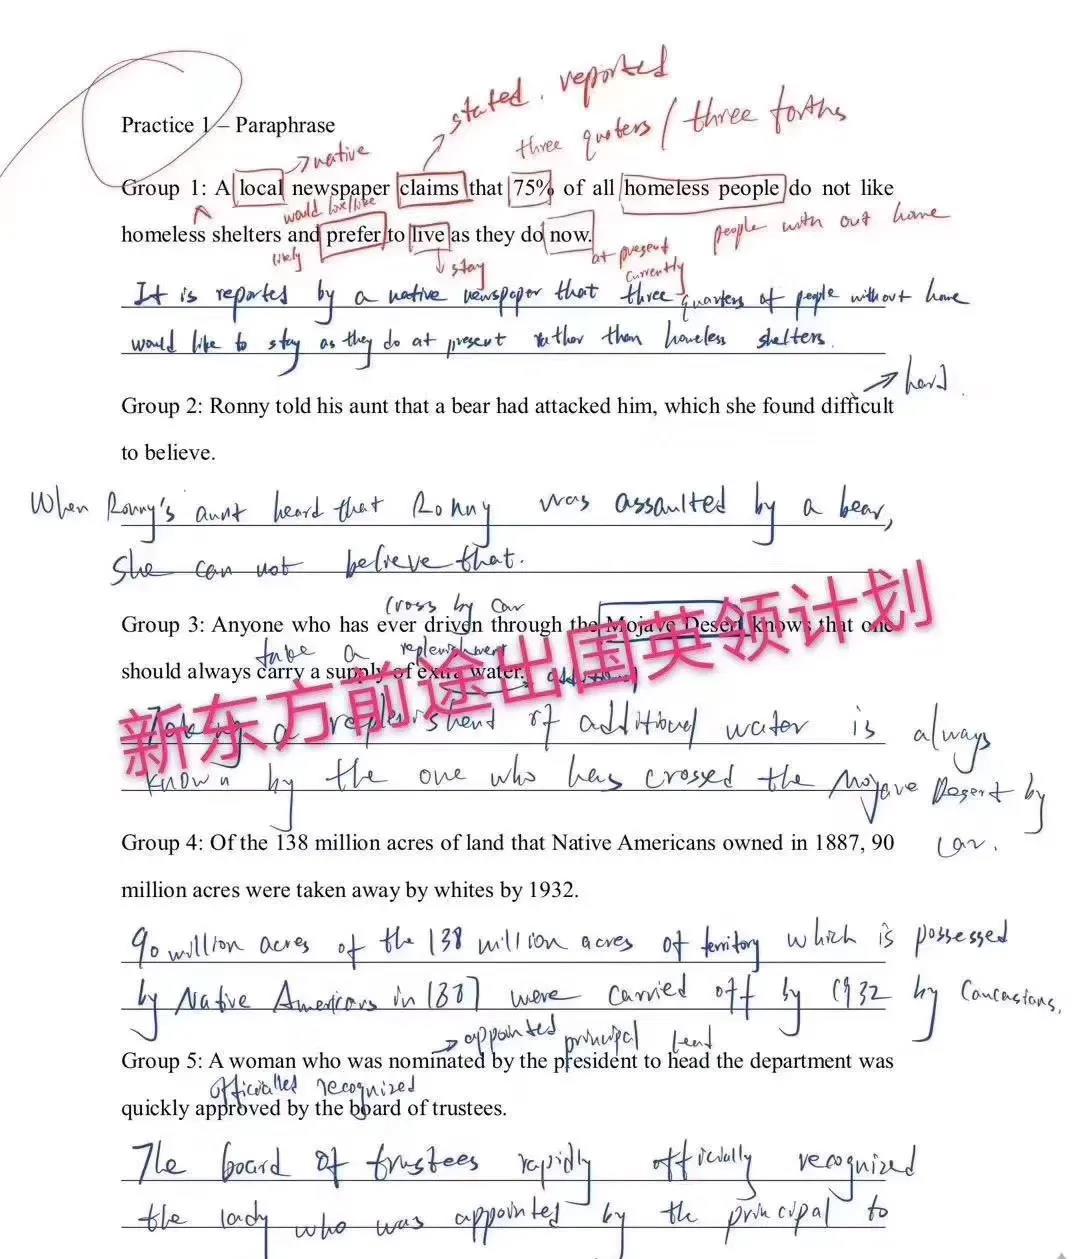 stated. reported
three quoters / three forths
Practice 1 – Paraphrase
native
Group 1: A local newspaper claims that 75% of all homeless people do not like
would love/like
people with out home
homeless shelters and prefer to live as they do now.
likely
stay
at present
currently
It is reported by a native newspaper that three quarters of people without home
would like to stay as they do at present rather than homeless shelters.
hard.
Group 2: Ronny told his aunt that a bear had attacked him, which she found difficult
to believe.
When Ronny's aunt heard that Ronny was assaulted by a bear,
She can not believe that.
cross by car
Group 3: Anyone who has ever driven through the Mojave Desert knows that one
take a replenishment
should always carry a supply of extra water.
新东方前途出国英领计划
Taking a of additional water is always
known by the one who has crossed the Mojave Desert by
car.
Group 4: Of the 138 million acres of land that Native Americans owned in 1887, 90
million acres were taken away by whites by 1932.
90 million acres of the 138 million acres of territory which is possessed
by Native Americans in 1887 were carried off by 1932 by Caucasians.
appointed principal lead
Group 5: A woman who was nominated by the president to head the department was
officialled recognized
quickly approved by the board of trustees.
The board of trustees rapidly officially recognized
the lady who was appointed by the principal to